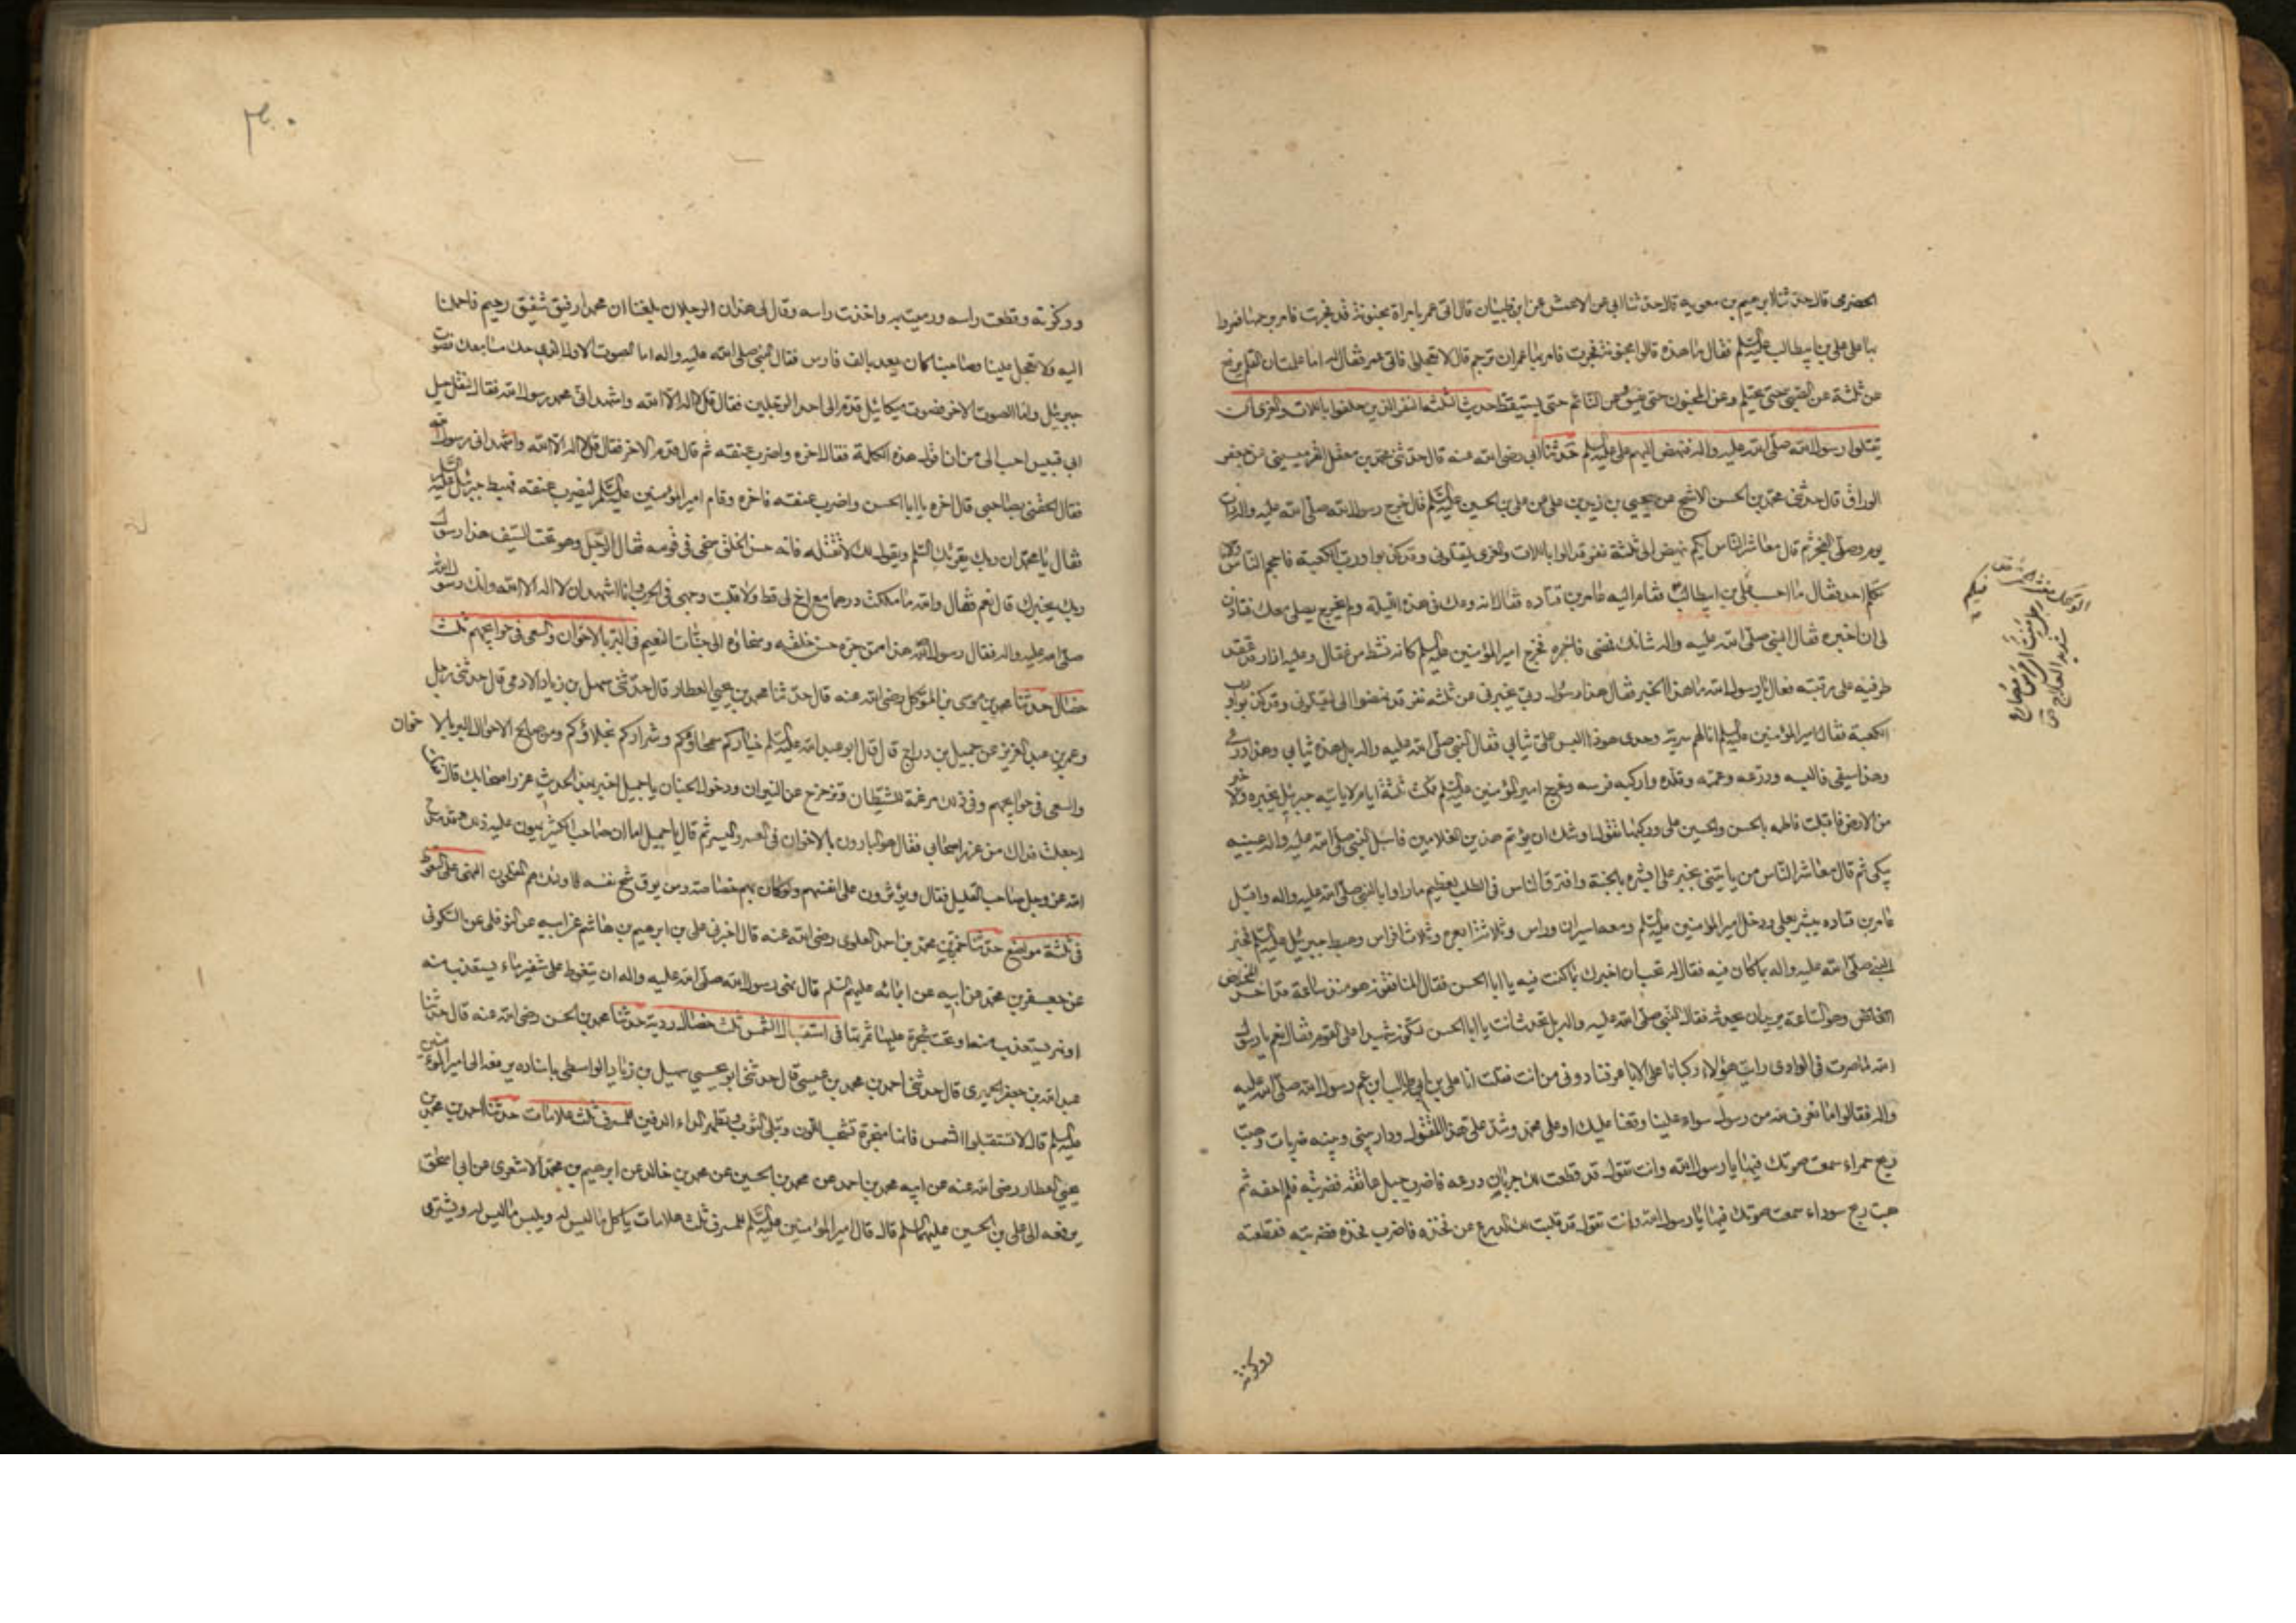 الحضرمى قال حدثنا ابرهيم بن معويه قال حدثنا ابى عن الاعمش عن ابن ظبيان قال اتى عمر بامراة مجنونة قد فجرت فامر برجمها فمروا
بها على على بن ابيطالب عليه السلم فقال ما هذه قالوا مجنونة فجرت فامر بها عمر ان ترجم قال لا تعجلوا فاتى عمر فقال له اما علمت ان القلم يرفع
عن ثلثة عن الصبى حتى يحتلم وعن المجنون حتى يفيق وعن النائم حتى يستيقظ حديث الثلثة النفر الذين حلفوا باللات والعزى ان
يقتلوا رسول الله صلى الله عليه واله فنهض اليهم على عليه السلم حدثنا ابى رضى الله عنه قال حدثنى محمد بن معقل القرميسينى عن جعفر
الوراق قال حدثنى محمد بن الحسن الاشج عن يحيى بن زيد بن على عن على بن الحسين عليه السلم قال خرج رسول الله صلى الله عليه واله ذات
يوم وصلى الفجر ثم قال معاشر الناس ايكم ينهض الى ثلثة نفر قد الوا باللات والعزى ليقتلونى وقد كذبوا ورب الكعبة فاحجم الناس وما
تكلم احد فقال ما احسب على بن ابيطالب فقام اليه عامر بن قتاده فقال انه وعك فى هذه الليلة ولم يخرج يصلى معك فتاذن
لى ان اخبره فقال النبى صلى الله عليه واله شانك فمضى فاخبره فخرج امير المؤمنين عليه السلم كانه نشط من عقال وعليه ازار قد عقد
طرفيه على رقبته فقال يا رسول الله ما هذا الخبر فقال هذا رسول ربى يخبرنى عن ثلثه نفر قد نهضوا الى ليقتلونى وقد كذبوا ورب
الكعبة فقال امير المؤمنين عليه السلم انا لهم سرية وحدى هوذا البس على ثيابى فقال النبى صلى الله عليه واله بل هذه ثيابى وهذا درعى
وهذا سيفى فالبسه ودرعه وعممه وقلده واركبه فرسه وخرج امير المؤمنين عليه السلم فمكث ثلثة ايام لا ياتيه جبرئيل بخبره ولا خبر
من الارض فاقبلت فاطمه بالحسن والحسين على وركيها تقول اوشك ان يؤتم هذين الغلامين فاسبل النبى صلى الله عليه واله عينيه
يبكى ثم قال معاشر الناس من ياتينى بخبر على ابشره بالجنة وافترق الناس فى الطلب لعظيم ما راوا بالنبى صلى الله عليه واله واقبل
عامر بن قتاده يبشر بعلى ودخل امير المؤمنين عليه السلم ومعه اسيران وراس وثلاثة ابعرة وثلاثة افراس وهبط جبرئيل عليه السلم فخبر
النبى صلى الله عليه واله بما كان فيه فقال له تحب ان اخبرك بما كنت فيه يا ابا الحسن فقال المنافقون هو منذ ساعة قد اخذه المخاض
وهو الساعة يريد ان يحدثه فقال النبى صلى الله عليه واله بل تحدث انت يا ابا الحسن لتكون شهيدا على القوم فقال نعم يا رسول
الله لما صرت فى الوادى رايت هؤلاء ركبانا على الاباعر فنادونى من انت فقلت انا على بن ابى طالب ابن عم رسول الله صلى الله عليه
واله فقالوا ما نعرف لله من رسول سواء علينا وقعنا عليك او على محمد وشد على هذا المقتول ودار بينى وبينه ضربات وهبت
ريح حمراء سمعت صوتك فيها يا رسول الله وانت تقول قد قطعت لك جربان درعه فاضرب حبل عاتقه فضربته فلم احفه ثم
هبت ريح سوداء سمعت صوتك فيها يا رسول الله وانت تقول قد قلبت لك الدرع عن فخذه فاضرب فخذه فضربته فقطعته
ووكزته
ووكزته وقطعت راسه ورميت به واخذت راسه وقال لى هذان الرجلان بلغنا ان محمدا رفيق شفيق رحيم فاحملنا
اليه ولا تعجل علينا وصاحبنا كان يعد بالف فارس فقال النبى صلى الله عليه واله اما الصوت الاول الذى صك مسامعك فصوت
جبرئيل واما الصوت الاخر فصوت ميكائيل قدم الى احد الرجلين فقال قل لا اله الا الله واشهد انى محمد رسول الله فقال لنقل جبل
ابى قبيس احب الى من ان اقول هذه الكلمة فقال اخره واضرب عنقه ثم قال قدم الاخر فقال قل لا اله الا الله واشهد انى رسول الله
فقال الحقنى بصاحبى قال اخره يا ابا الحسن واضرب عنقه فاخره وقام امير المؤمنين عليه السلم ليضرب عنقه فهبط جبرئيل عليه السلم
فقال يا محمد ان ربك يقرئك السلم ويقول لك لا تقتله فانه حسن الخلق سخى فى قومه فقال الرجل وهو تحت السيف هذا رسول
ربك يخبرك قال نعم فقال والله ما ملكت درهما مع اخ لى قط ولا قلبت وجهى فى الحرب انا اشهد ان لا اله الا الله وانك رسول الله
صلى الله عليه واله فقال رسول الله هذا ممن جره حسن خلقه وسخاؤه الى جنات النعيم فى البر بالاخوان والسعى فى حوائجهم ثلث
خصال حدثنا محمد بن موسى بن المتوكل رضى الله عنه قال حدثنا محمد بن يحيى العطار قال حدثنى سهل بن زياد الادمى قال حدثنى رجل
وعمر بن عبد العزيز عن جميل بن دراج قال قال ابو عبد الله عليه السلم خياركم سمحاؤكم وشراركم بخلاؤكم ومن صالح الاعمال البر بالاخوان
والسعى فى حوائجهم وفى ذلك مرغمة للشيطان وتزحزح عن النيران ودخول الجنان يا جميل اخبر بهذا الحديث غرر اصحابك قال
جعلت فداك من غرر اصحابى فقال هم البارون بالاخوان فى العسر واليسر ثم قال يا جميل اما ان صاحب الكثير يهون عليه ذلك وقد مدح
الله عز وجل صاحب القليل فقال ويؤثرون على انفسهم ولو كان بهم خصاصة ومن يوق شح نفسه فاولئك هم المفلحون النهى عن التغوط
فى ثلثة مواضع حدثنا حمزة بن محمد بن احمد العلوى رضى الله عنه قال اخبرنى على بن ابرهيم بن هاشم عن ابيه عن النوفلى عن السكونى
عن جعفر بن محمد عن ابيه عن ابائه عليهم السلم قال نهى رسول الله صلى الله عليه واله ان يتغوط على شفير ماء يستعذب منه
او نهر يستعذب منه او تحت شجرة عليها ثمرتها فى استقبال الشمس ثلث خصال ردية حدثنا محمد بن الحسن رضى الله عنه قال حدثنا
عبد الله بن جعفر الحميرى قال حدثنى احمد بن محمد بن عيسى قال حدثنى ابو عيسى سهيل بن زياد الواسطى باسناده يرفعه الى امير المؤمنين
عليه السلم قال لا تستقبلوا الشمس فانها مبخرة تشحب اللون وتبلى الثوب وتظهر الداء الدفين للمسرف ثلث علامات حدثنا احمد بن محمد بن
يحيى العطار رضى الله عنه عن ابيه محمد بن احمد عن محمد بن الحسين عن محمد بن خالد عن ابرهيم بن محمد الاشعرى عن ابى اسحق
يرفعه الى على بن الحسين عليهما السلم قال قال امير المؤمنين عليه السلم للمسرف ثلث علامات ياكل ما ليس له ويلبس ما ليس له ويشترى